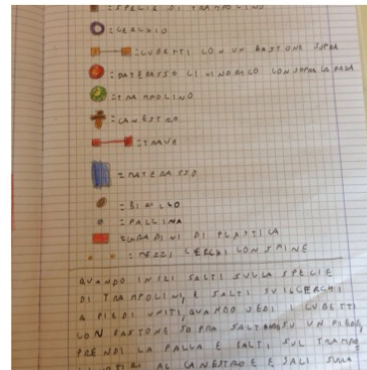 : SPECIE DI TRAMPOLINO
: CERCHIO
: CUBETTI CON UN BASTONE SOPRA
: MATERASSO CILINDRICO CON SOPRA LA
: TRAMPOLINO
: CANESTRO
: TRAVE
: MATERASSO
: BIRILLO
: PALLINA
: DI PLASTICA
: MEZZI CERCHI CON SPINE
QUANDO INIZI SALTI SULLA SPECIE
DI TRAMPOLINI, E SALTI SU I CERCHI
A PIEDI UNITI, QUANDO VEDI I CUBETTI
CON BASTONE SOPRA SALT SU UN PIEDE,
PRENDI LA PALLA E SALTI SUL TRAMPO
AL CANESTRO E SALI SULLA